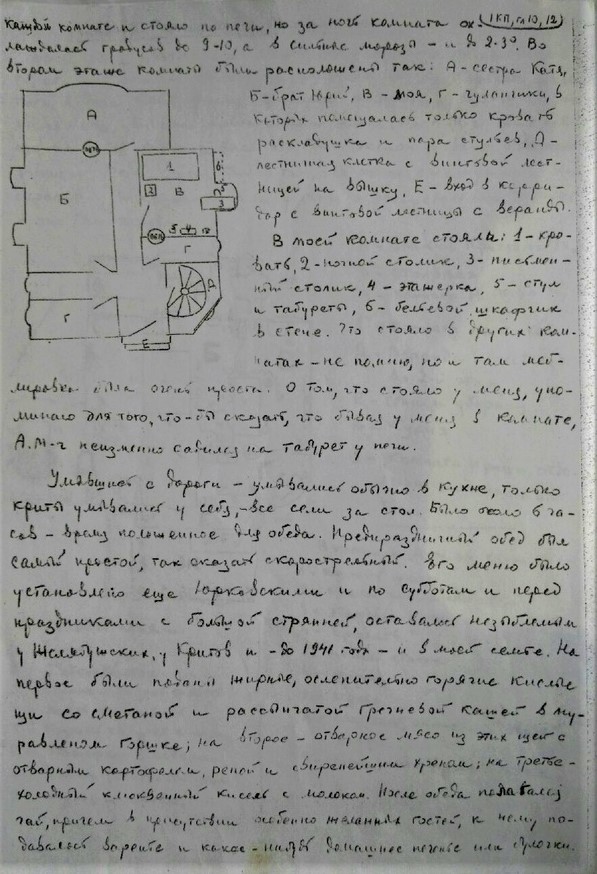 каждой комнате и стояло по печи, но за ночь комната ох-
(1КП, гл 10, 12)
лаживалась градусов до 9-10, а в сильные морозы - и до 2-3°. Во
втором этаже комнаты были расположены так: А - сестра Катя,
Б - брат Юрий, В - моя, Г - чуланчики, в
которых помещалась только кровать
раскладушка и пара стульев, Д -
лестничная клетка с винтовой лест-
ницей на вышку, Е - вход в корри-
дор с винтовой лестницы с веранды.
В моей комнате стояли: 1 - кро-
вать, 2 - ночной столик, 3 - письмен-
ный столик, 4 - этажерка, 5 - стул
и табуреты, 6 - бельевой шкафчик
в стене. Что стояло в других ком-
натах - не помню, но и там меб-
лировка была очень проста. О том, что стояло у меня, упо-
минаю для того, что-бы сказать, что бывая у меня в комнате,
А.М-ч неизменно садился на табурет у печи.
Умывшись с дороги - умывались обычно в кухне, только
Криты умывались у себя, - все сели за стол. Было около 6 ча-
сов - время положенное для обеда. Предпраздничный обед был
самый простой, так сказать скорострельный. Его меню было
установлено еще Юрковскими и по субботам и перед
праздниками с большой стряпней, оставалось незыблемым
у Желябужских, у Критов и - до 1941 года - и в моей семье. На
первое были поданы жирные, ослепительно горячие кислые
щи со сметаной и рассыпчатой гречневой кашей в му-
равленом горшке; на второе - отварное мясо из этих щей с
отварным картофелем, репой и свирепейшим хреном; на третье -
холодный клюквенный кисель с молоком. После обеда подавался
чай, причем в присутствии особенно желанных гостей, к нему по-
давалось варенье и какое-нибудь домашнее печенье или булочки.
А
печ
Б
1
2
В
6
5
3
печ
5
4
Г
Д
Г
Е